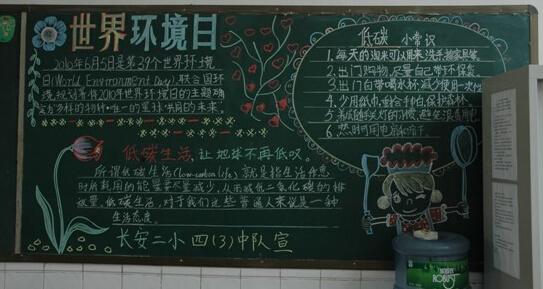 世界环境日
2010年6月5日是第39个世界环境
日(World Environment Day),联合国环
境规划署将2010年世界环境日的主题确
定为"多样的物种·唯一的星球·共同的未来。"
低碳生活,让地球不再低叹。
所谓低碳生活(low-carbon life)就是指生活作息
时所耗用的能量要尽量减少,从而减低二氧化碳的排
放量。低碳生活,对于我们这些普通人来说是一种
生活态度。
长安二小四(3)中队宣
低碳 小常识
1.每天的淘米水可以用来洗手、擦家具等。
2.出门购物,尽量自己带环保袋。
3.出门自带喝水杯,减少使用一次性
4.少用纸巾,
保护森林。
6.
ROBUST